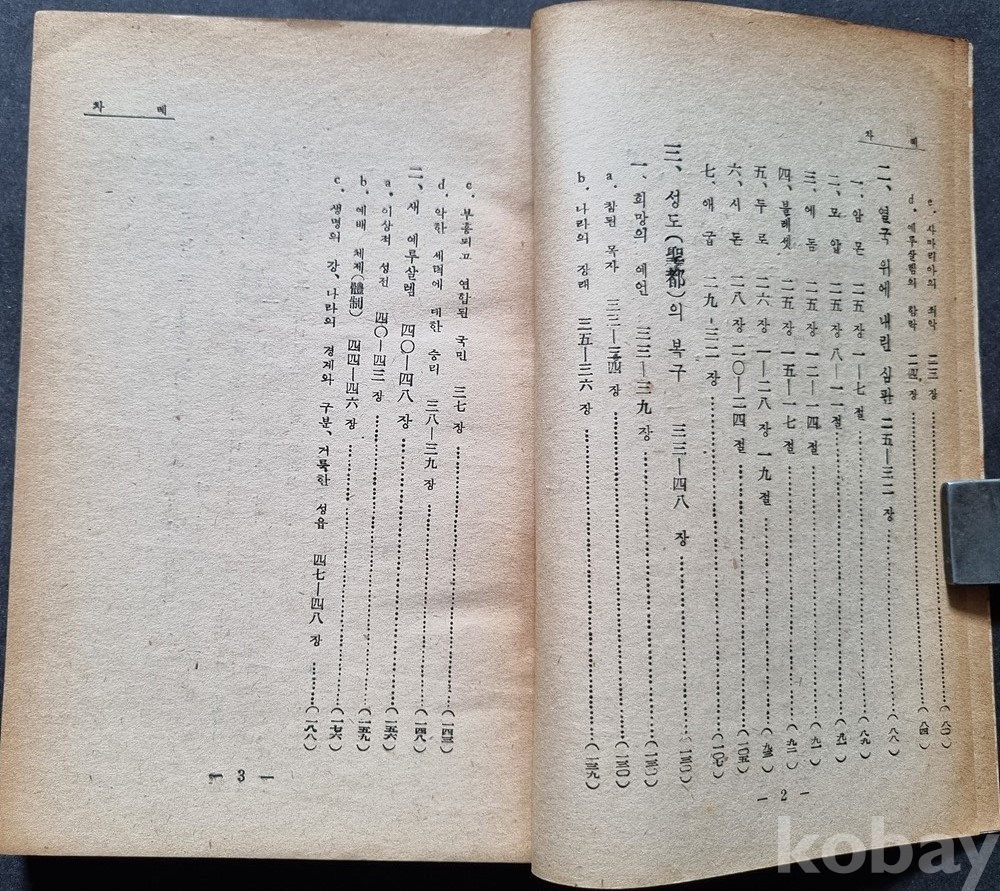 차 례
e. 사마리아의 죄악 二三 장 ……(八一)
d. 예루살렘의 함락 二四 장 ……(八四)
二、열국 위에 내린 심판 二五—三二 장 ……(八八)
一、암몬 二五장 一—七절 ……(八九)
二、모압 二五장 八—一一절 ……(九一)
三、에돔 二五장 一二—一四절 ……(九一)
四、블레셋 二五장 一五—一七절 ……(九二)
五、두로 二六장 一—二八장 一九절 ……(九三)
六、시돈 二八장 二〇—二四절 ……(一〇五)
七、애굽 二九—三二 장 ……(一〇七)
三、성도(聖都)의 복구 三三—四八 장 ……(一三〇)
一、희망의 예언 三三—三九 장 ……(一三〇)
a. 참된 목자 三三—三四 장 ……(一三〇)
b. 나라의 장래 三五—三六 장 ……(一三九)
— 2 —
차 례
c. 부흥되고 연합된 국민 三七 장 ……(一四三)
d. 악한 세력에 대한 승리 三八—三九 장 ……(一四八)
二、새 예루살렘 四〇—四八 장 ……(一五六)
a. 이상적 성전 四〇—四三 장 ……(一五九)
b. 예배 체제(體制) 四四—四六 장 ……(一七六)
c. 생명의 강、나라의 경계와 구분、거룩한 성읍 四七—四八 장 ……(一八八)
— 3 —
kobay